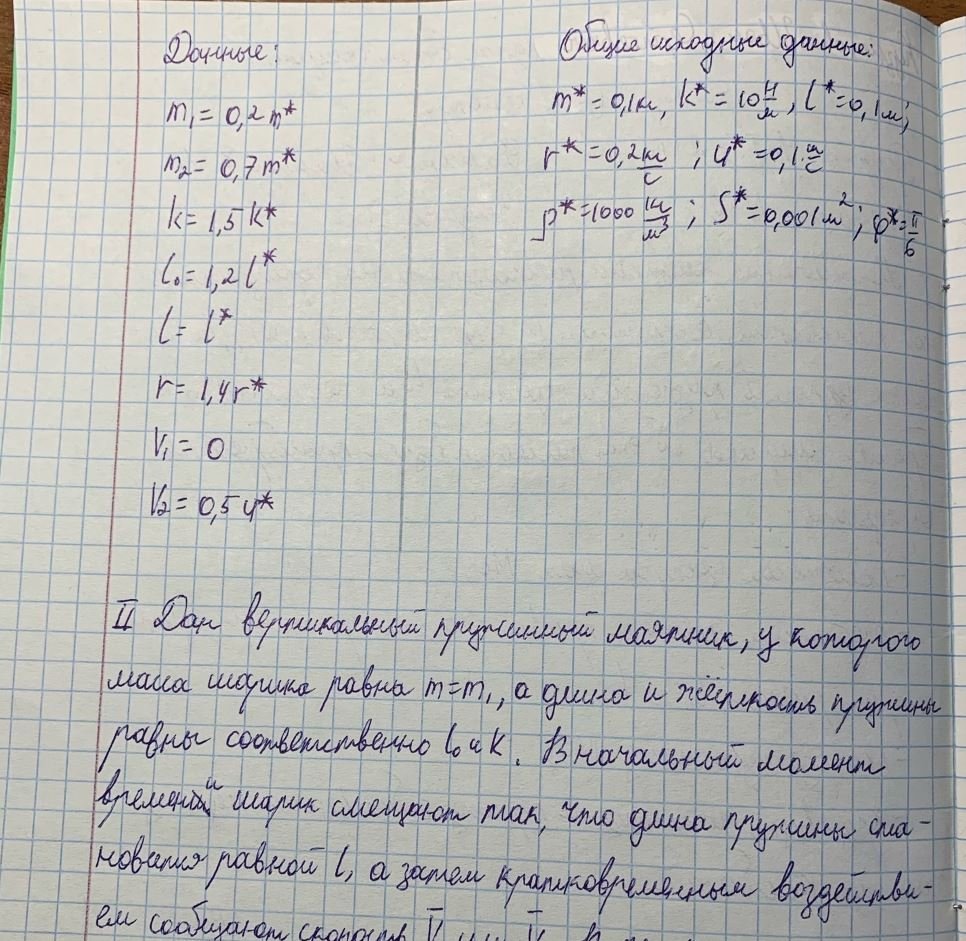 Данные:
m₁ = 0,2 m*
m₂ = 0,7 m*
k = 1,5 k*
l₀ = 1,2 l*
l = l*
r = 1,4 r*
V₁ = 0
V₂ = 0,5 u*
Общие исходные данные:
m* = 0,1 кг, k* = 10 Н/м, l* = 0,1 м;
r* = 0,2 кг/с ; u* = 0,1 м/с
ρ* = 1000 кг/м³ ; S* = 0,001 м² ; φ* = π/6
II Дан вертикальный пружинный маятник, у которого
масса шарика равна m = m₁, а длина и жёсткость пружины
равны соответственно l₀ и k. В начальный момент
времени шарик смещают так, что длина пружины ста-
новится равной l, а затем кратковременным воздействи-
ем сообщают скорость V